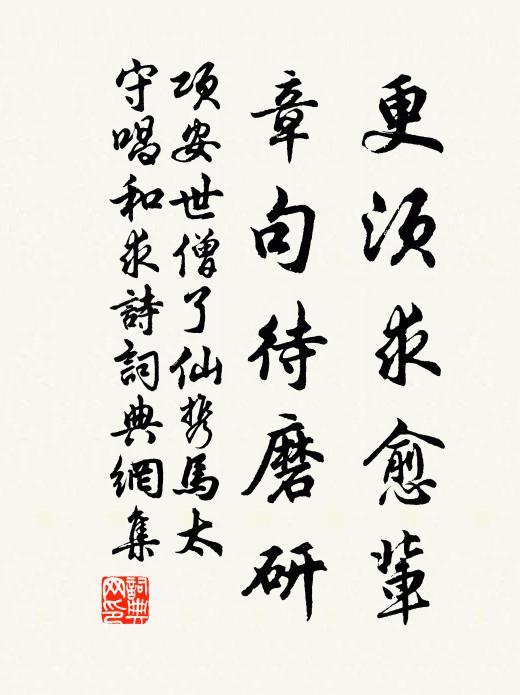 更須求愈輩
章句待磨研
項安世僧了仙携馬太
守唱和求詩詞典網集
詞典
网印